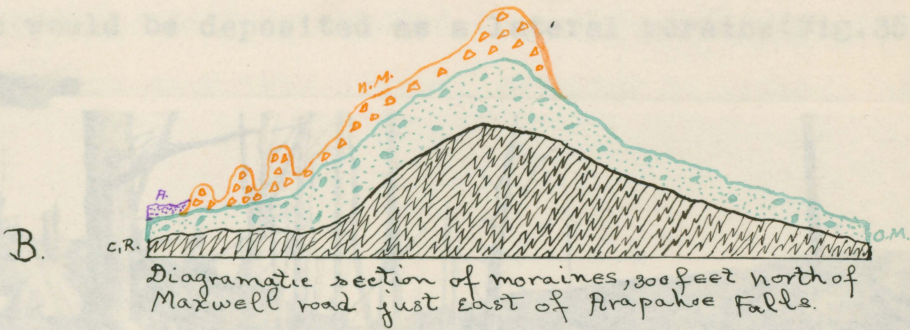 would be deposited as a lateral moraine (Fig. 35
N.M.
A.
O.M.
B.
C.R.
Diagramatic section of moraines, 300 feet north of
Maxwell road just East of Arapahoe Falls.